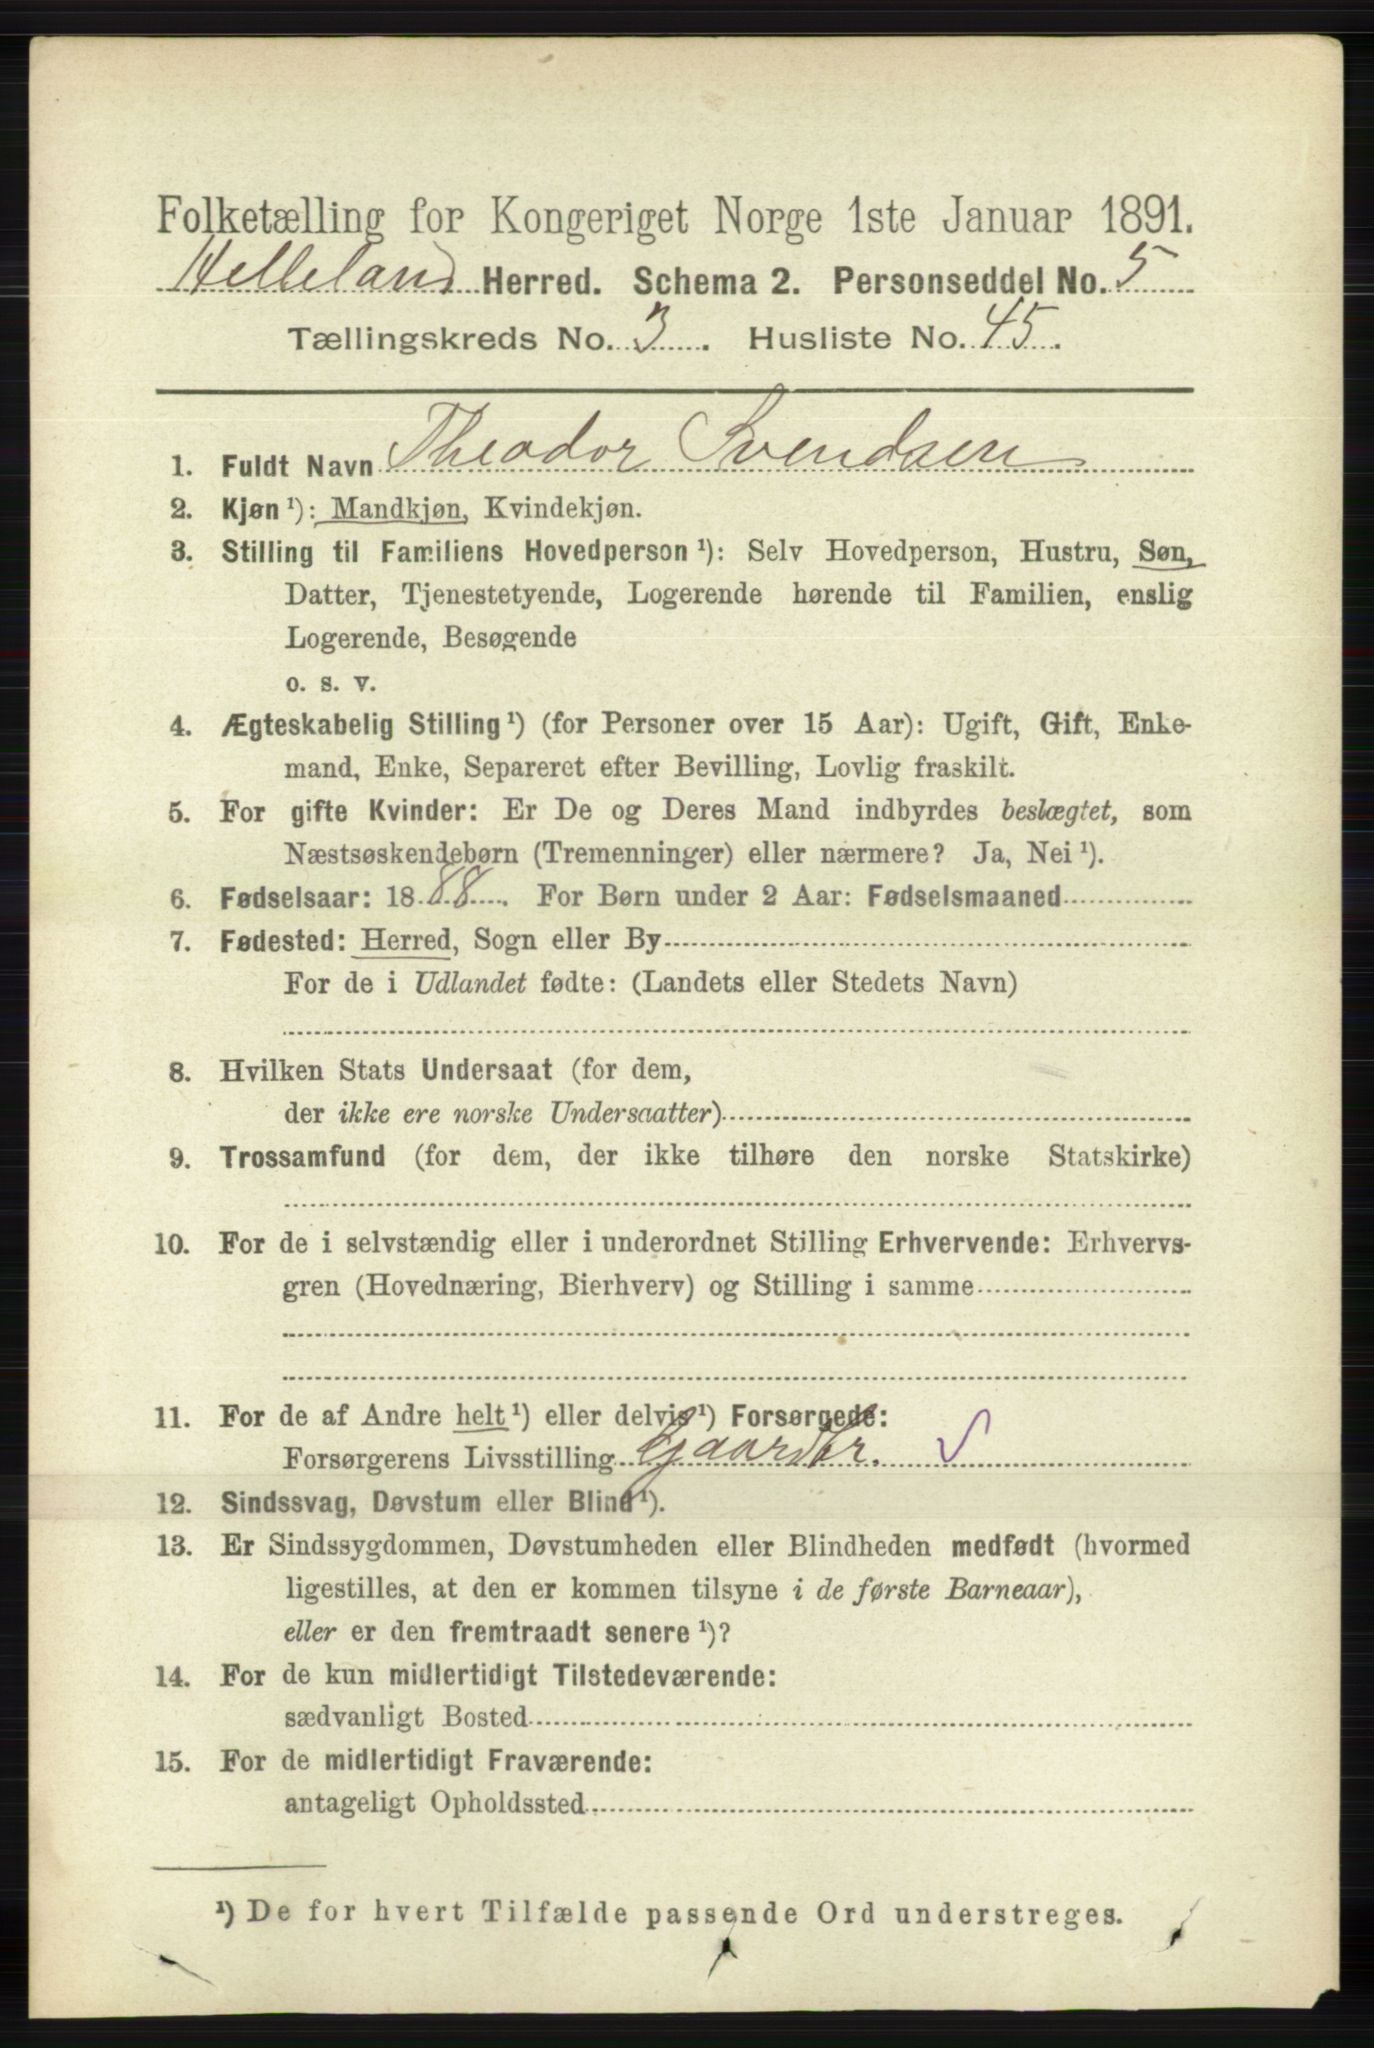 Folketælling for Kongeriget Norge 1ste Januar 1891.
Helleland Herred. Schema 2. Personseddel No. 5
Tællingskreds No. 3. Husliste No. 45.
1. Fuldt Navn Theodor Svendsen
2. Kjøn¹): Mandkjøn, Kvindekjøn.
3. Stilling til Familiens Hovedperson¹): Selv Hovedperson, Hustru, Søn,
Datter, Tjenestetyende, Logerende hørende til Familien, enslig
Logerende, Besøgende
o. s. v.
4. Ægteskabelig Stilling¹) (for Personer over 15 Aar): Ugift, Gift, Enke-
mand, Enke, Separeret efter Bevilling, Lovlig fraskilt.
5. For gifte Kvinder: Er De og Deres Mand indbyrdes beslægtet, som
Næstsøskendebørn (Tremenninger) eller nærmere? Ja, Nei¹).
6. Fødselsaar: 1888. For Børn under 2 Aar: Fødselsmaaned
7. Fødested: Herred, Sogn eller By
For de i Udlandet fødte: (Landets eller Stedets Navn)
8. Hvilken Stats Undersaat (for dem,
der ikke ere norske Undersaatter)
9. Trossamfund (for dem, der ikke tilhøre den norske Statskirke)
10. For de i selvstændig eller i underordnet Stilling Erhvervende: Erhvervs-
gren (Hovednæring, Bierhverv) og Stilling i samme
11. For de af Andre helt¹) eller delvis¹) Forsørgede:
Forsørgerens Livsstilling Gaardbr.
12. Sindssvag, Døvstum eller Blind¹).
13. Er Sindssygdommen, Døvstumheden eller Blindheden medfødt (hvormed
ligestilles, at den er kommen tilsyne i de første Barneaar),
eller er den fremtraadt senere¹)?
14. For de kun midlertidigt Tilstedeværende:
sædvanligt Bosted
15. For de midlertidigt Fraværende:
antageligt Opholdssted
¹) De for hvert Tilfælde passende Ord understreges.